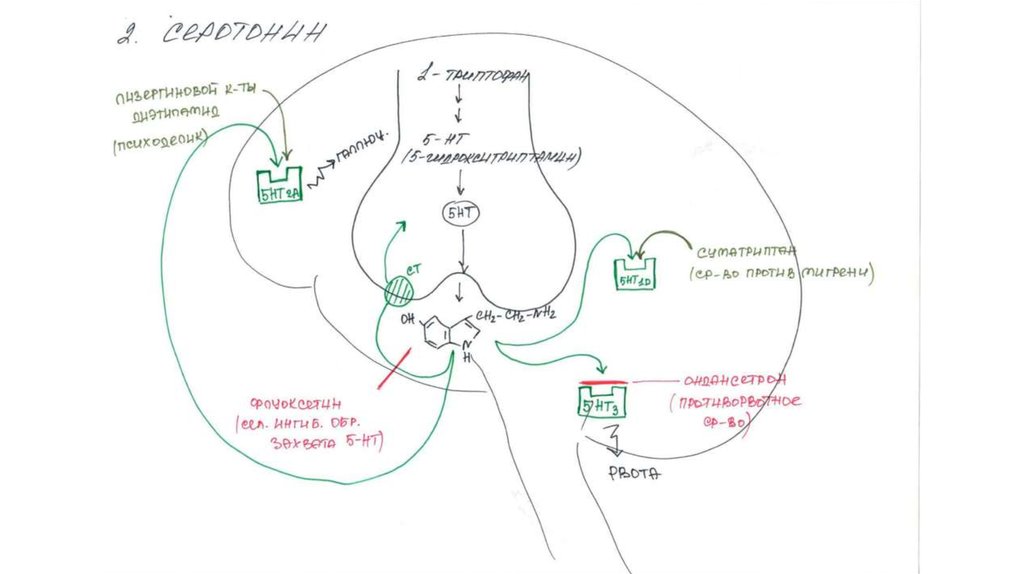 2. СЕРОТОНИН
L-ТРИПТОФАН
5-НТ
(5-ГИДРОКСИТРИПТАМИН)
5НТ
ЛИЗЕРГИНОВОЙ К-ТЫ
ДИЭТИЛАМИД
(ПСИХОДЕЛИК)
5НТ2А
ГАЛЛЮЦ.
СТ
OH
CH2-CH2-NH2
N
H
5НТ1D
СУМАТРИПТАН
(СР-ВО ПРОТИВ МИГРЕНИ)
ФЛУОКСЕТИН
(СЕЛ. ИНГИБ. ОБР.
ЗАХВАТА 5-НТ)
5НТ3
ОНДАНСЕТРОН
(ПРОТИВОРВОТНОЕ
СР-ВО)
РВОТА